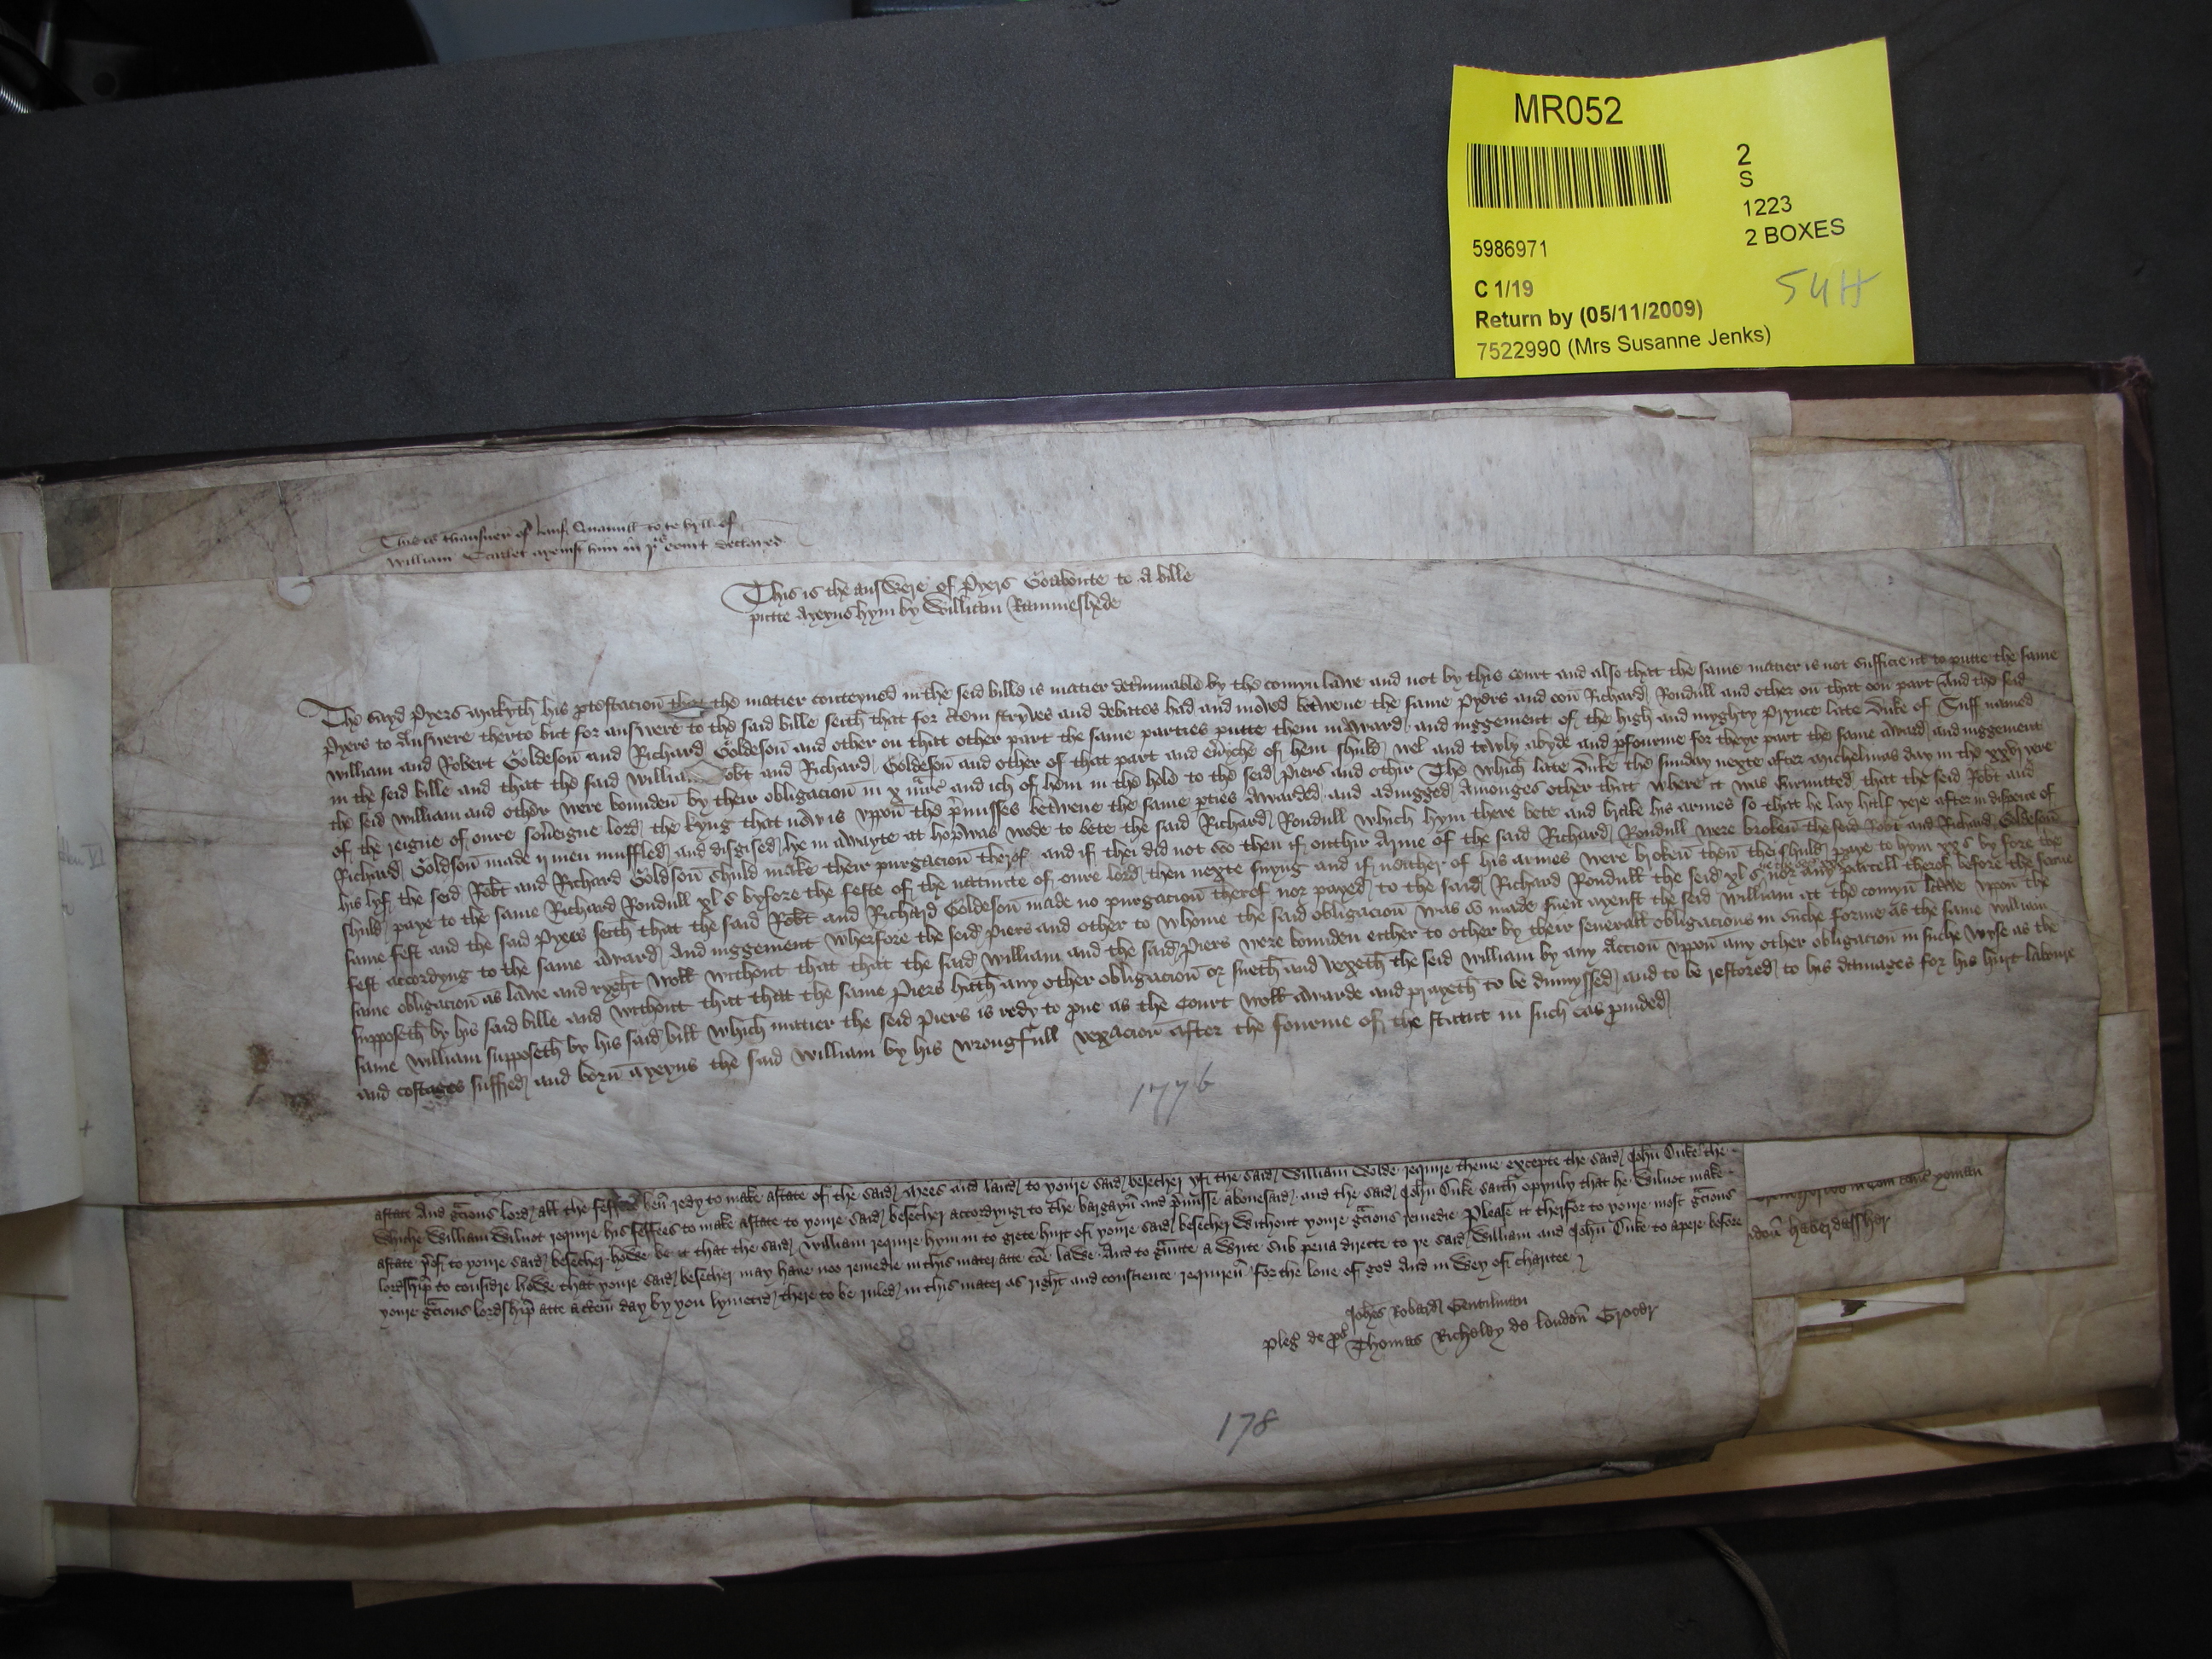 MR052
2
S
1223
2 BOXES
5986971
C 1/19
54H
Return by (05/11/2009)
7522990 (Mrs Susanne Jenks)
This is thansuer of to te bylle of
William ayenst him in court declared
This is the answere of Pyers Goaboute to a bille
putte ayeyns hym by William Rammeshede
The sayd Pyers makyth his ptestacion that the matier conteyned in the seid bille is matier determinable by the comyn lawe and not by this court and also that the same matier is not sufficient to putte the same
Pyers to answere therto but for answere to the said bille seith that for stryves and debattes had and moved betwene the same Pyers and oon Richard Rondull and other on that oon part And the seid
William and Robert Goldeson and Richard Goldeson and other on that other part the same parties putte them in award and juggement of the high and myghty Prynce late Duke of Suff named
in the seid bille and that the said William Robt and Richard Goldeson and other of that part and eueryche of hem shuld wel and trewly abyde and pfourme for theyr part the same award and juggement
the seid William and other were bounden by their obligacion in and ich of hem in the hole to the seid Piers and other The which late Duke the sunday nexte after Michelmas day in the xxvj yere
of the reigne of oure souereigne lord the kyng that now is vppon the pmisses betwene the same pties awarded and adiugged Amonges other that where it was surmitted that the seid Robt and
Richard Goldson made ij men muffled and disgised lye in awayte at hopwas wode to bete the said Richard Rondull which hym there bete and brake his armes so that he lay half yere after in dispeire of
his lyf the seid Robt and Richard Goldson shuld make their purgacion therof and if thei did not so then if outhir Arme of the said Richard Rondull were broken the seid Robt and Richard Goldeson
shuld paye to the same Richard Rondull xl s byfore the feste of the natiuite of oure lord then nexte suyng and if neither of his armes were broken then thei shuld paye to hym xx s by fore the
same fest and the said Pyers seith that the said Robt and Richard Goldeson made no purgacion therof nor payed to the said Richard Rondull the seid xl s nor any parcell therof before the same
fest accordyng to the same award and juggement wherfore the seid Piers and other to whome the said obligacion was so made suen ayenst the seid William att the comyn lawe vpon the
same obligacion as lawe and ryght woll without that that the said William and the said Piers were bounden either to other by their seuerall obligacions in suche forme as the same William
supposeth by his said bille and without that that the same Piers hath any other obligacion or sueth and vexeth the seid William by any accion vppon any other obligacion in suche wyse as the
same William supposeth by his said bill which matier the seid Piers is redy to pue as the Court woll awarde and prayeth to be dimyssed and to be restored to his damages for his hurt laboure
and costages suffred and born ayeyns the said William by his wrongfull vexacion after the fourme of the statut in such cas pvided
1776
astate And gcious lord all the feffees ben redy to make astate of the said mees and land to youre said besecher yf the said William Wolde require theme excepte the said John Cuke the
whiche William Wilnot require his feffees to make astate to youre said besecher accordyng to the bargayn and pmisse abouesaid and the said John Cuke saith opynly that he Wilnot make
astate to youre said besecher howe be it that the said William require hym in to grete hurt of youre said besecher without youre gcious remedie Please it therfor to youre most gcious
lordship to considre howe that youre said besecher may haue noo remedie in this mater atte coe lawe And to gunte a Write sub pena directe to ye said William and John Cuke to apere before
youre gcious lordship atte a day by you lymeted there to be ruled in this mater as right and conscience requiren For the loue of god And in Wey of charitee
Johes Robard Gentilman
pleg de Thomas de london Grocer
yoman
haberdassher
178